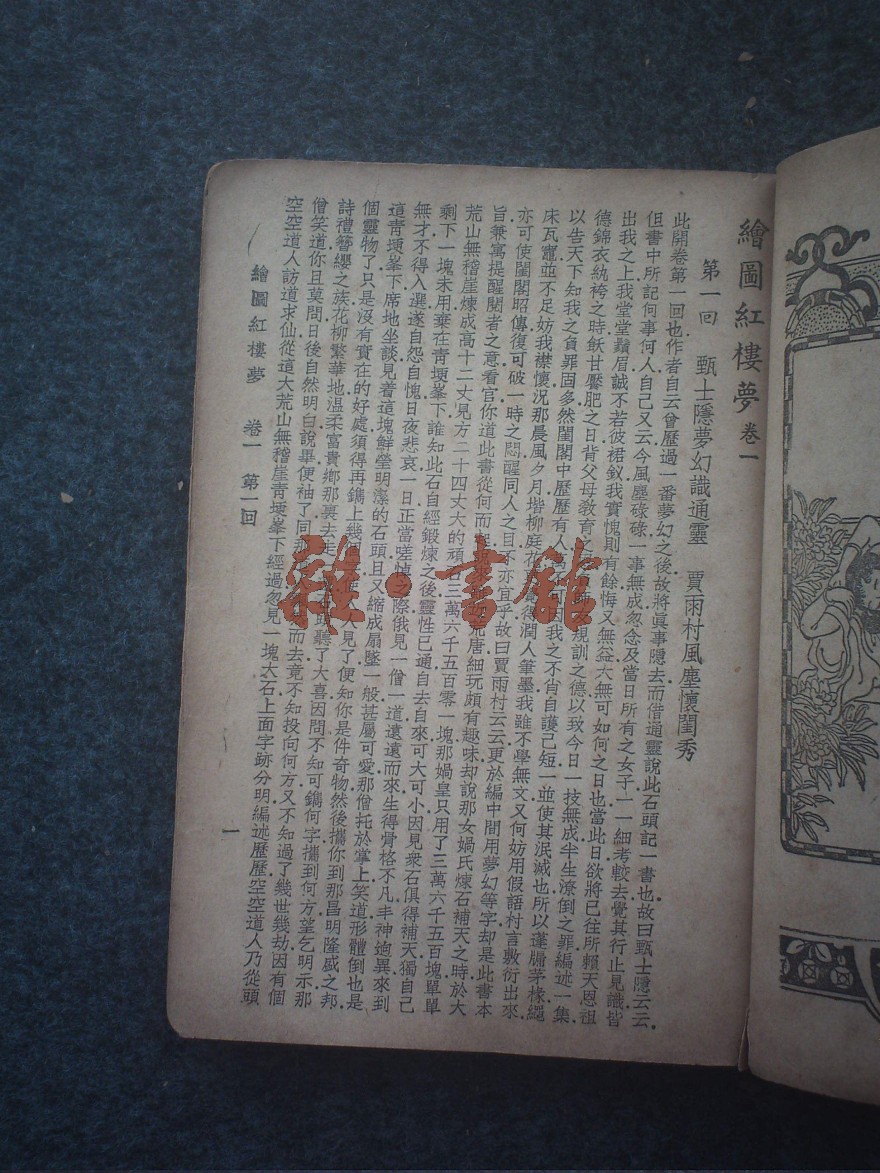 繪圖紅樓夢 卷一
第一回 甄士隱夢幻識通靈 賈雨村風塵懷閨秀
此開卷第一回也作者自云曾歷過一番夢幻之後故將眞事隱去而借通靈說此石頭記一書也故曰甄士隱云云
但書中所記何事何人自己又云今風塵碌碌一事無成忽念及當日所有之女子一一細考較去覺其行止見識皆
出我之上我堂堂鬚眉誠不若彼裙釵我實愧則有餘悔又無益大無可如何之日也當此日欲將已往所賴天恩祖
德錦衣紈袴之時飫甘饜肥之日背父母敎育規訓之德以致今日一技無成半生潦倒之罪編述一集
以告天下知我之負罪固多然閨閣中歷歷有人因我之不肖自護己短一並使其泯滅也所以蓬牖茅椽繩
床瓦竈並不足妨我襟懷況那晨風夕月堦柳庭花潤人筆墨我雖不學無文又何妨用假語村言敷衍出來
亦可使閨閣昭傳復可破一時之悶醒同人之目不亦宜乎故曰賈雨村云云更於編中間用夢幻等字却是此書本
旨兼寓提醒閱者之意看官你道此書從何而起荒唐細玩頗有趣味却說那女媧氏煉石補天之時於大
荒山無稽崖煉成高十二丈見方二十四丈大的頑石三萬六千五百零一塊那媧皇只用了三萬六千五百塊單單
剩下一塊未用棄在靑埂峯下誰知此石自經鍛煉之後靈性已通自去自來可大可小因見衆石俱得補天獨自己
無才不得入選遂自怨自愧日夜悲哀一日正當嗟悼之際俄見一僧一道遠遠而來生得骨格不凡丰神迥異來到
這靑埂峯下席地坐談見着這塊鮮瑩明潔的石頭且又縮成扇墜一般甚屬可愛那僧托於掌上笑道形體倒也是
個靈物了只是沒有實在的好處須得再鐫上幾人見了便知你是件奇物然後攜你到那昌明隆盛之邦
詩禮簪纓之族花柳繁華地溫柔富貴鄉那裏去走聽了大喜因問不知可鐫何字攜到何方望乞明示那
僧笑道你且莫問日後自然明白說畢便袖了同那而去竟不知投向何方又不知過了幾世幾劫因有個
空空道人訪道求仙從這大荒山無稽崖靑埂峯下經過忽見一塊大石上面字跡分明編述歷歷空空道人乃從頭
繪圖紅樓夢 卷一 第一回 一
雜·書館